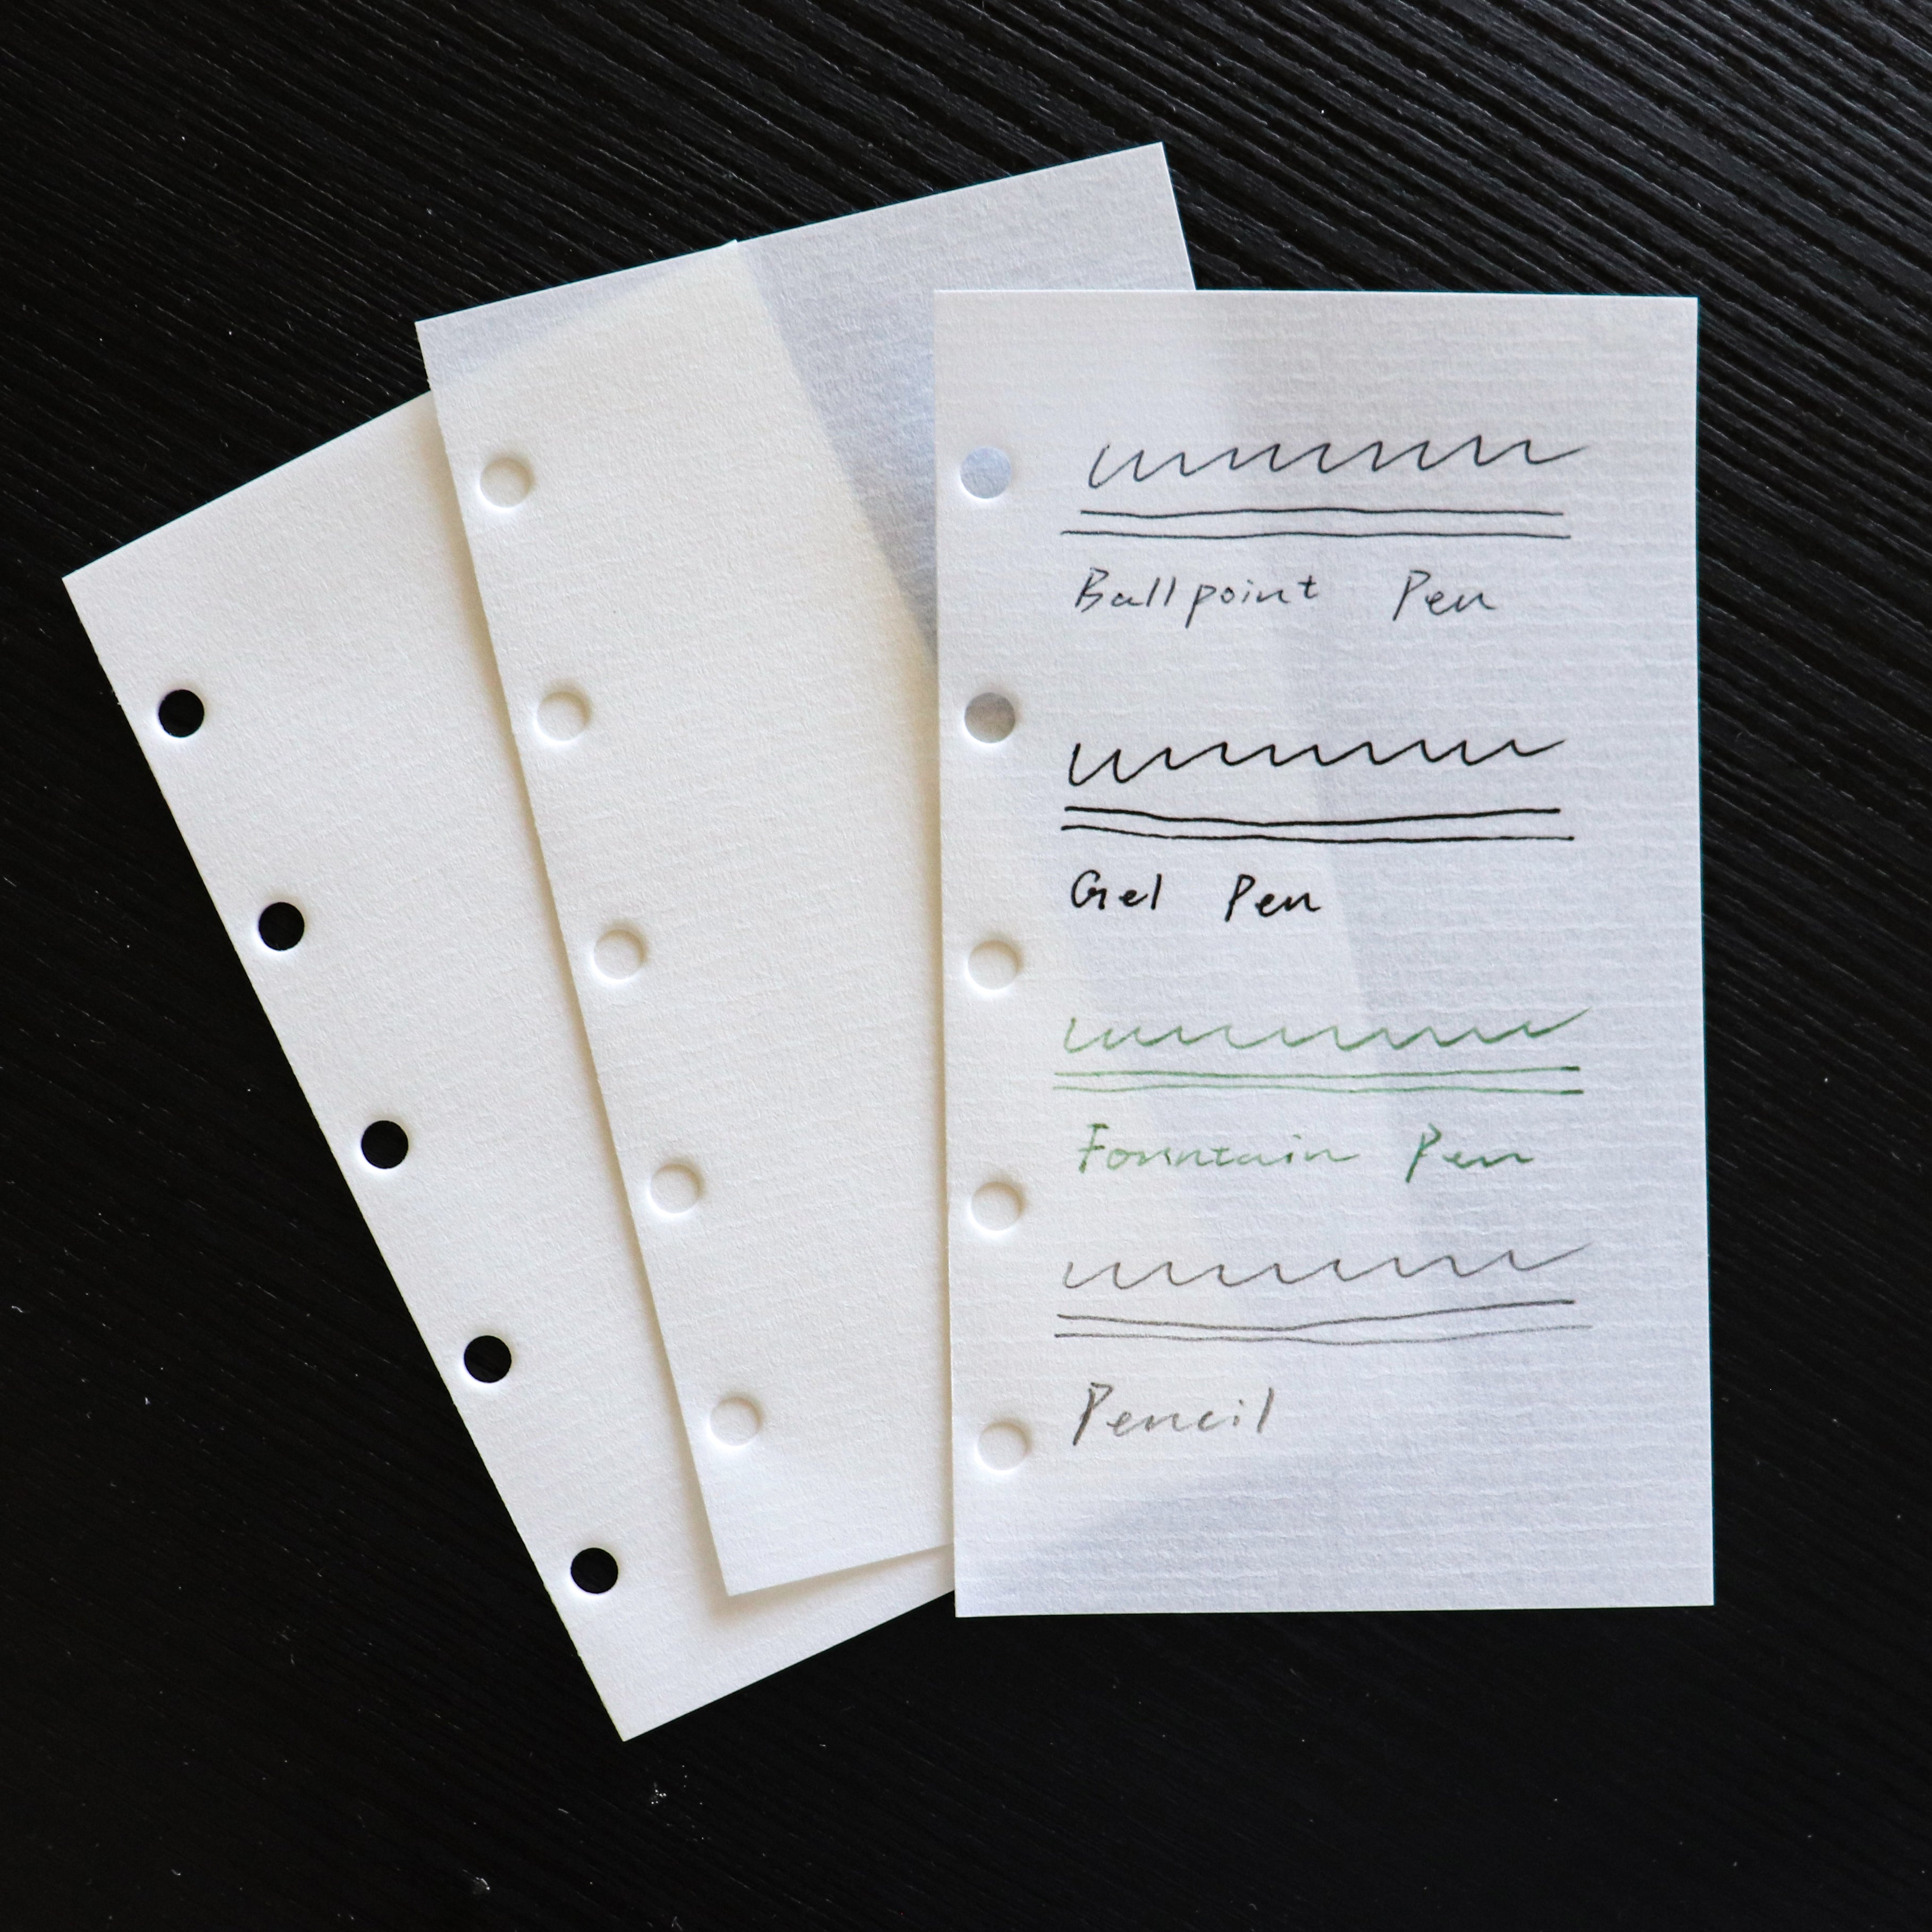 Ballpoint Pen
Gel Pen
Fountain Pen
Pencil